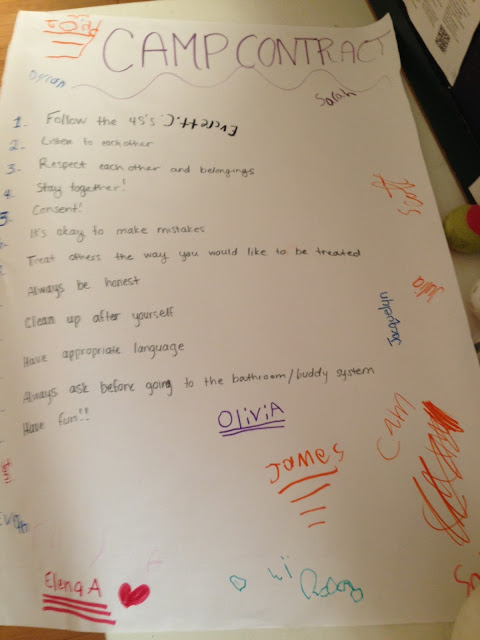 CAMP CONTRACT
Dylan
Sarah
1- Follow the 4S's
Everett.C.
2- Listen to each other
3- Respect each other and belongings
4. Stay together!
5. Consent!
It's okay to make mistakes
Treat others the way you would like to be treated
Always be honest
Clean up after yourself
Have appropriate language
Always ask before going to the bathroom/buddy system
Have fun!!
Scott
Julia
Jacquelyn
OliviA
James
ElenaA
hi